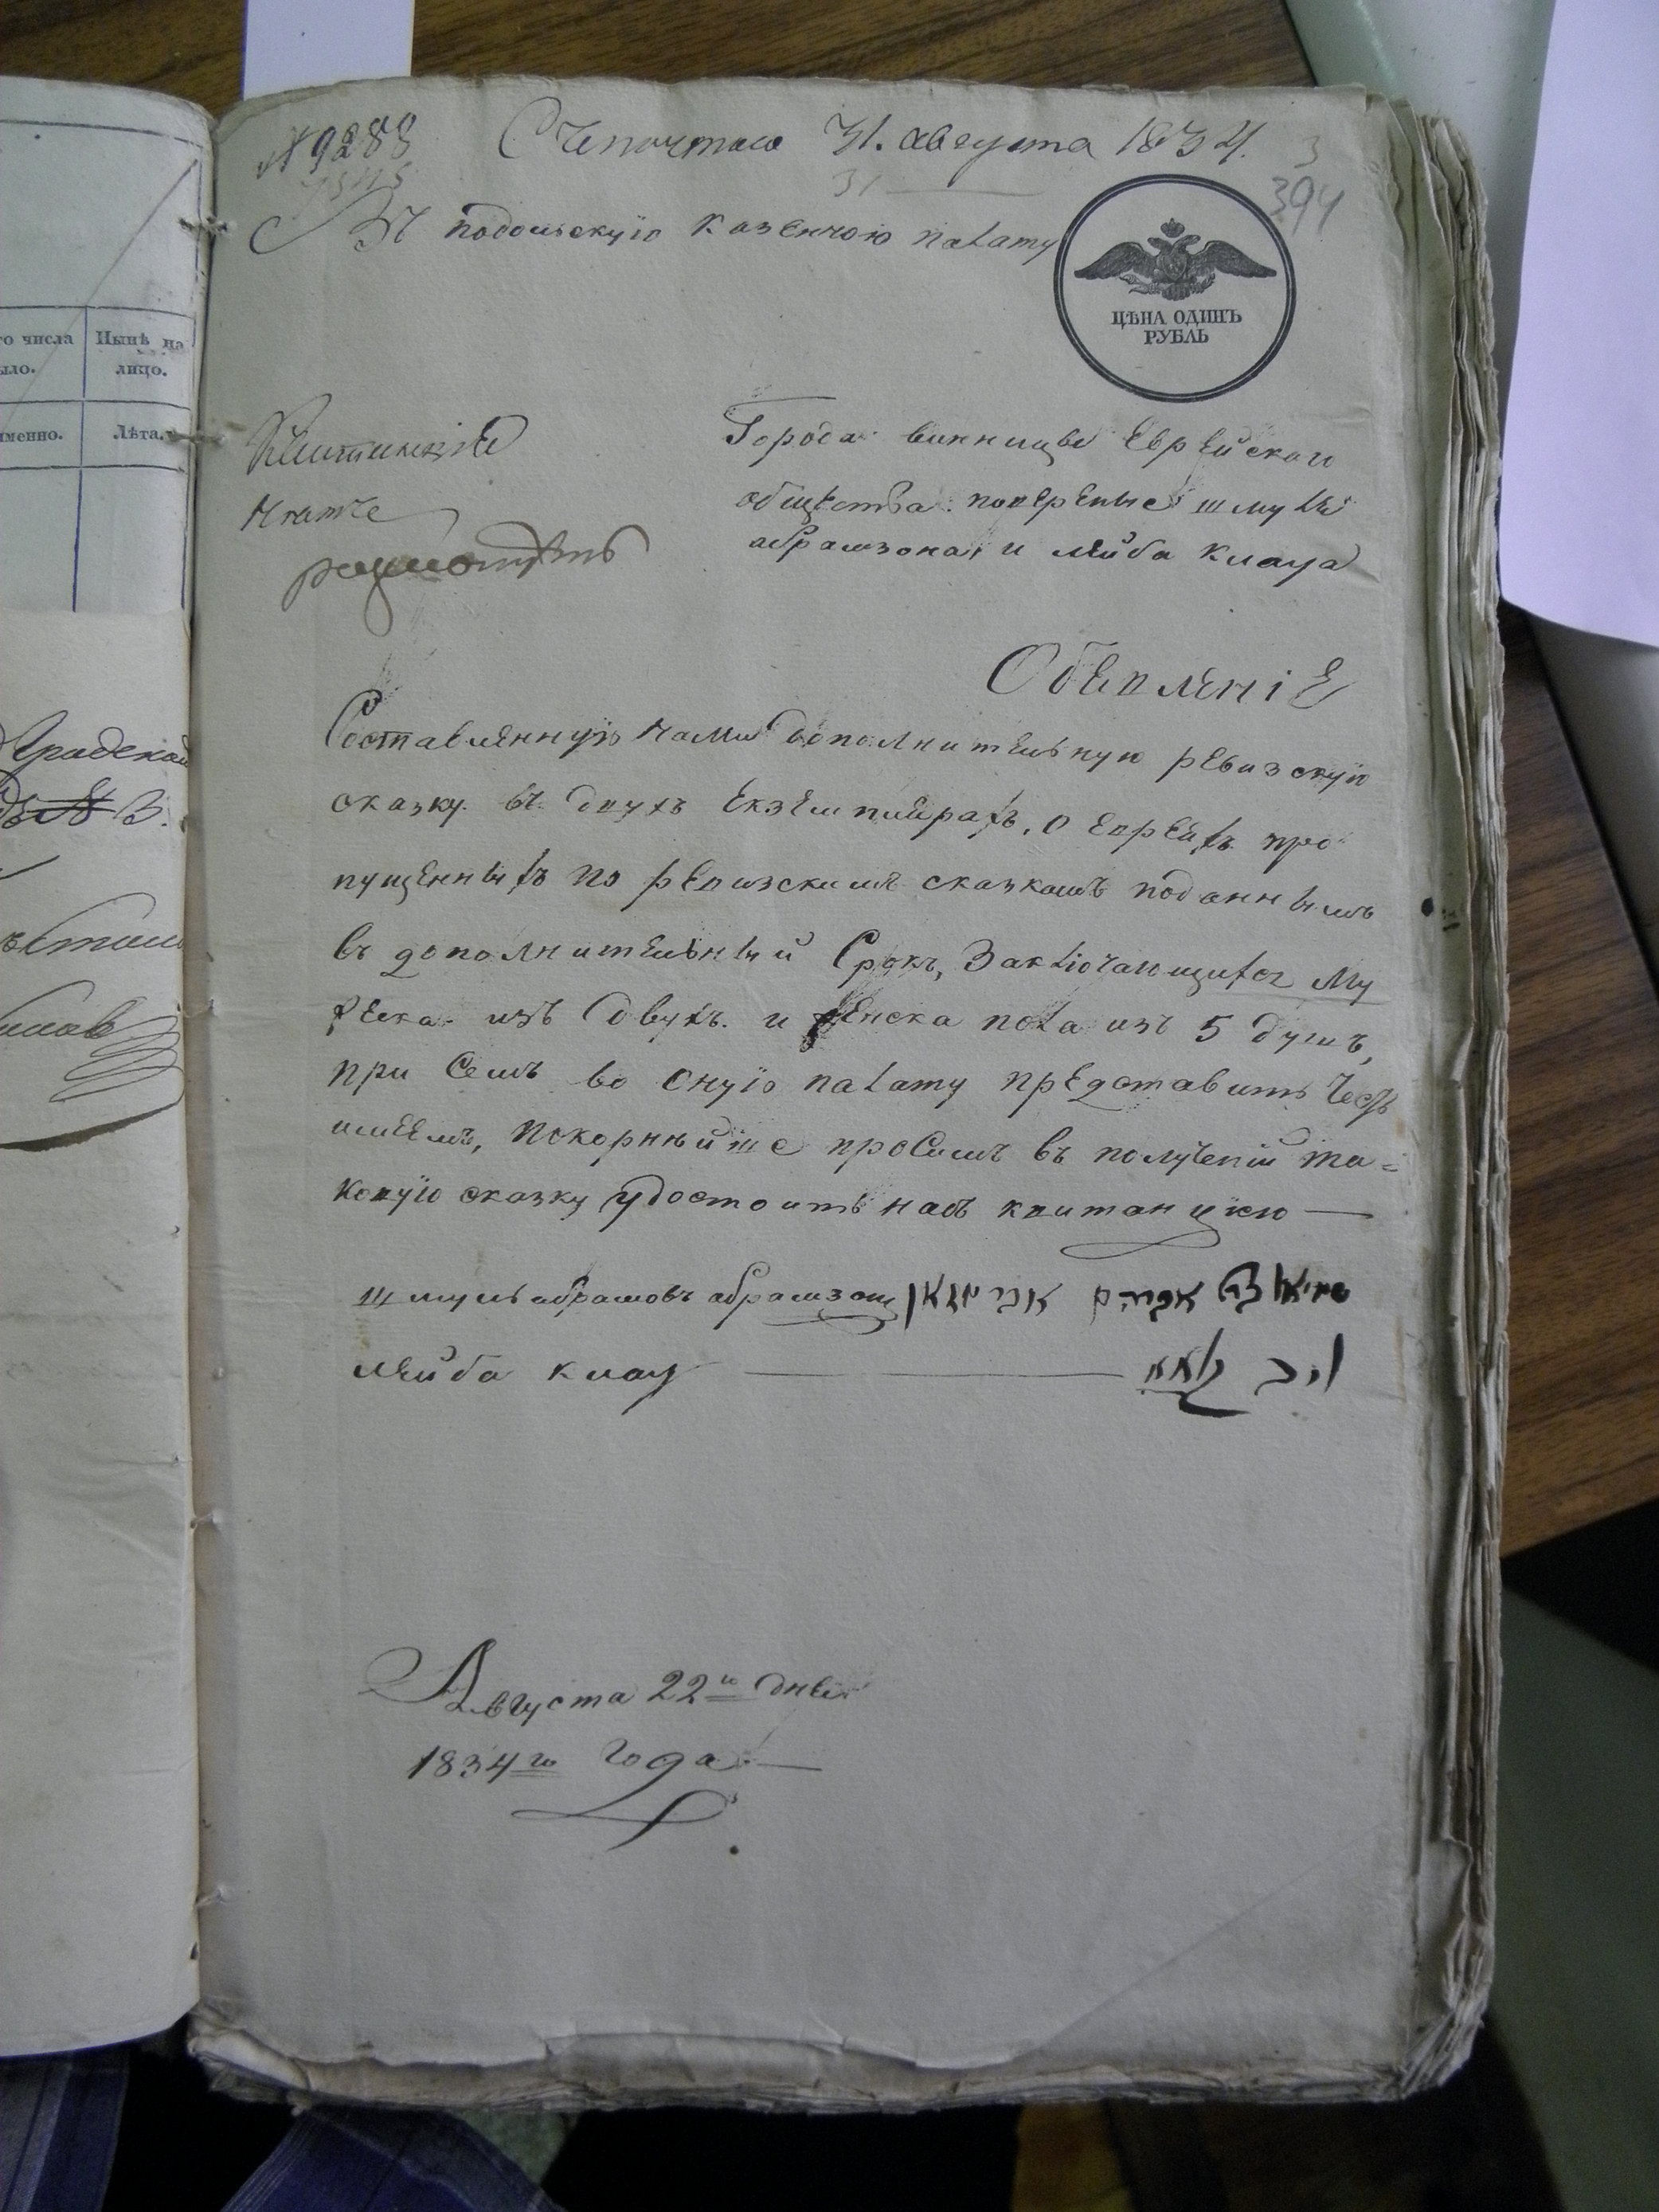 № 9288 Съ почтою 31. августа 1834.
3
31
394
Въ подольскую казенною палату
ЦѢНА ОДИНЪ
РУБЛЬ
го числа
было.
Нынѣ на
лицо.
именно.
Лѣта.
Города винницы Еврейскаго
общества повѣреные шмуля
абрамзона и лейба клаua
Обевленіе
Составленную нами дополнительную ревизскую
сказку въ двухъ екземплярахъ, о евреяхъ про
пущенныхъ по ревизскимъ сказкамъ поданнымъ
въ дополнительный Срокъ, Заключающихся му
жеска изъ двухъ и женска пола изъ 5 душъ,
при Семъ во оную палату представить честь
имеемъ, покорнѣйше просимъ въ полученіи та-
ковую сказку удостоить насъ квитанцією
шмуль абрамовъ абрамзон
лейба клау
לייב
Августа 22го дня
1834го года